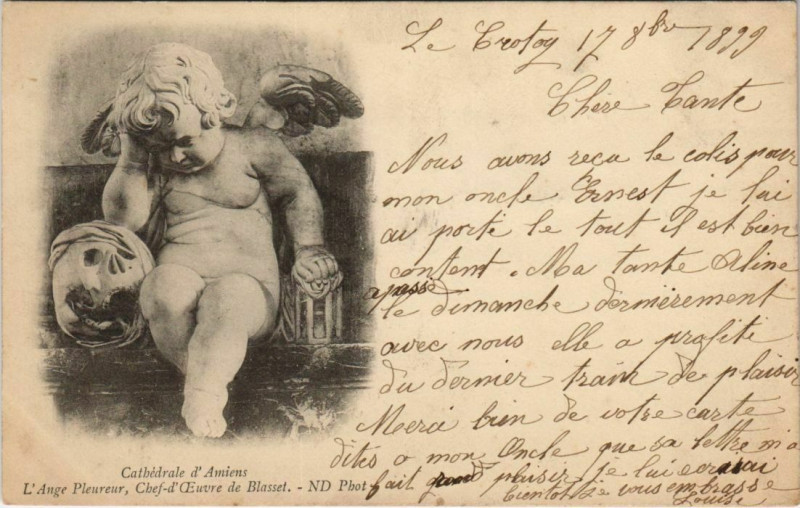 Le Crotoy 17 8bre 1899
Chère Tante
Nous avons reçu le colis pour
mon oncle Ernest je lui
ai porté le tout il est bien
content. Ma tante Aline
passé
le dimanche dernièrement
avec nous elle a profité
du dernier train de plaisir
Merci bien de votre carte
dites a mon Oncle que sa lettre m'a
fait grand plaisir je lui écrirai
bientôt Je vous embrasse
Louise
Cathédrale d'Amiens
L'Ange Pleureur, Chef-d'Œuvre de Blasset. - ND Phot